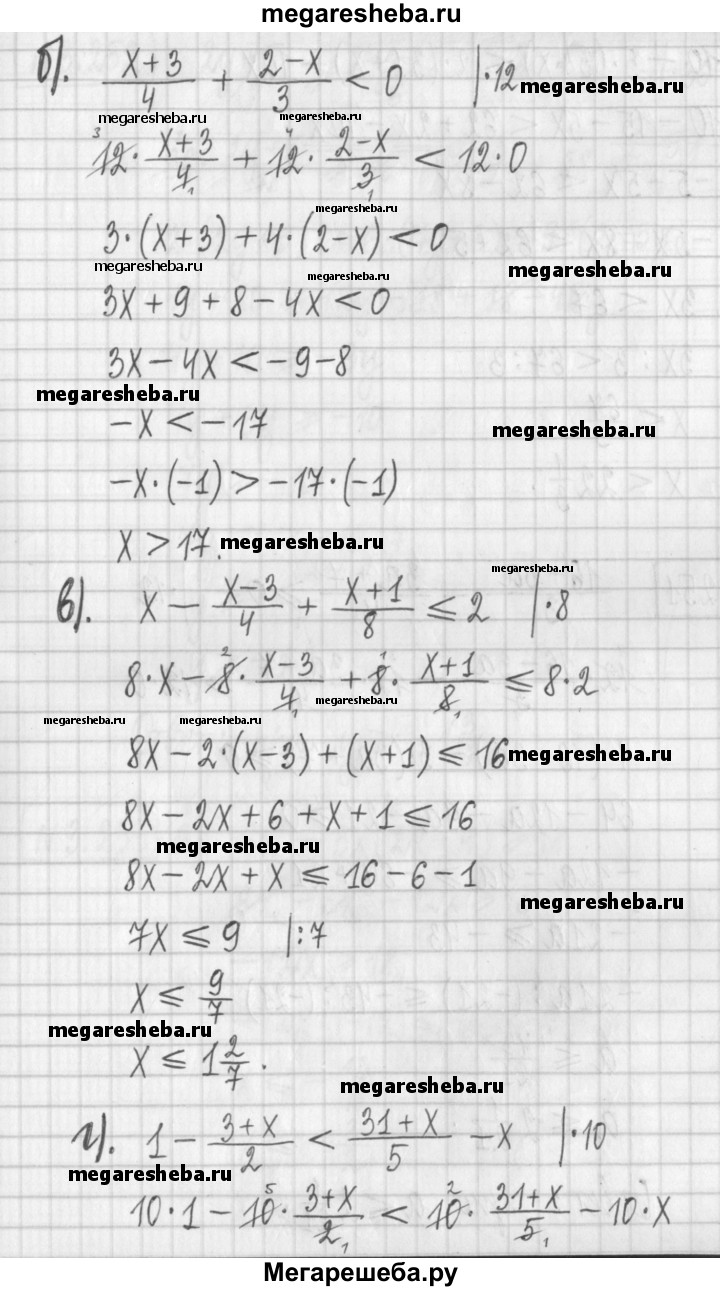 megaresheba.ru
б). (x+3)/4 + (2-x)/3 < 0 |·12 megaresheba.ru
megaresheba.ru megaresheba.ru
³12· (x+3)/4₁ + ⁴12· (2-x)/3₁ < 12·0
megaresheba.ru
3·(x+3)+4·(2-x)<0
megaresheba.ru megaresheba.ru megaresheba.ru
3x+9+8-4x<0
3x-4x<-9-8
megaresheba.ru
-x<-17 megaresheba.ru
-x·(-1)>-17·(-1)
x>17. megaresheba.ru
megaresheba.ru
в). x - (x-3)/4 + (x+1)/8 ≤ 2 |·8
8·x - ²8· (x-3)/4₁ + ¹8· (x+1)/8₁ ≤ 8·2
megaresheba.ru
megaresheba.ru megaresheba.ru
8x-2·(x-3)+(x+1)≤16 megaresheba.ru
8x-2x+6+x+1≤16
megaresheba.ru
8x-2x+x≤16-6-1
megaresheba.ru
7x≤9 |:7
x≤ 9/7
megaresheba.ru
x≤1 2/7.
megaresheba.ru
г). 1 - (3+x)/2 < (31+x)/5 - x |·10
megaresheba.ru
10·1 - ⁵10· (3+x)/2₁ < ²10· (31+x)/5₁ - 10·x
Мегарешеба.ру